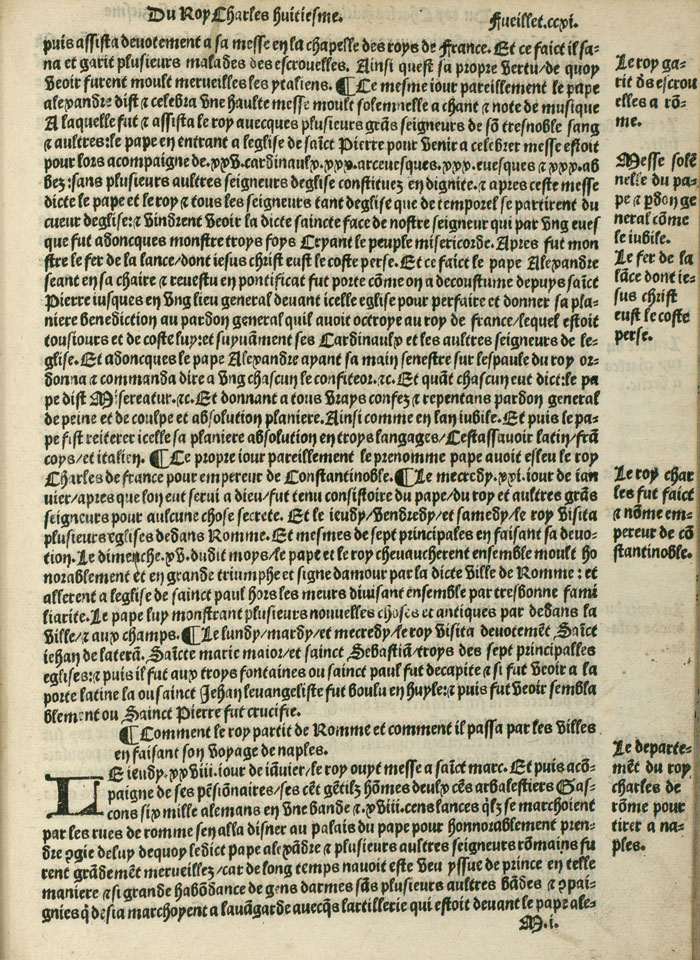 Du Roy Charles huitiesme.
Fueillet.ccxi.
puis assista devotement a sa messe en la chapelle des roys de France. Et ce faict il sa-
na et garit plusieurs malades des escrouelles. Ainsi quest sa propre vertu/de quoy
veoir furent moult merveilles les ytaliens. ¶ Ce mesme iour pareillement le pape
alexandre dist ⁊ celebra vne haulte messe moult solennelle a chant ⁊ note de musique
A laquelle fut ⁊ assista le roy avecques plusieurs grãs seigneurs de sõ tresnoble sang
⁊ aultres:le pape en entrant a leglise de saĩct Pierre pour venir a celebrer messe estoit
pour lors acompaigne de.xxv.cardinaulx.xxx.arcevesques.xxx.evesques ⁊ xxx.ab
bez:sans plusieurs aultres seigneurs deglise constituez en dignite.⁊ apres ceste messe
dicte le pape et le roy ⁊ tous les seigneurs tant deglise que de temporel se partirent du
cueur deglise:⁊ vindrent veoir la dicte saincte face de nostre seigneur qui par vng eves
que fut adoncques monstre troys foys Cryant le peuple misericorde. Apres fut mon
stre le fer de la lance/dont iesus christ eust le coste perse. Et ce faict le pape Alexandre
seant en sa chaire ⁊ revestu en pontificat fut porte cõme on a decoustume depuys saĩct
Pierre iusques en vng lieu general devant icelle eglise pour perfaire et donner sa pla-
niere benediction au pardon general quil avoit octroye au roy de france/lequel estoit
tousiours et de coste luy:et suyuãment ses Cardinaulx et les aultres seigneurs de le-
glise. Et adoncques le pape Alexandre ayant sa main senestre sur lespaule du roy or-
donna ⁊ commanda dire a vng chascun le confiteor.⁊c. Et quãt chascun eut dict:le pa
pe dist Misereatur.⁊c. Et donnant a tous vrays confez ⁊ repentans pardon general
de peine et de coulpe et absolution planiere. Ainsi comme en lan iubile. Et puis le pa-
pe fist reiterer icelle sa planiere absolution en troys langages/Cestassavoir latin/frã
coys/et italien. ¶ Ce propre iour pareillement le prenomme pape avoit esleu le roy
Charles de france pour empereur de Constantinoble. ¶ Le mecredy.xxi.iour de ian
vier/apres que lon eut servi a dieu/fut tenu consistoire du pape/du roy et aultres grãs
seigneurs pour aulcune chose secrete. Et le ieudy/vendredy/et samedy/le roy visita
plusieurs eglises dedans Romme. Et mesmes de sept principales en faisant sa devo-
tion. Le dimenche.xv.dudit moys/le pape et le roy chevaucherent ensemble moult ho
norablement et en grande triumphe et signe damour par la dicte ville de Romme : et
allerent a leglise de sainct paul hors les meurs divisant ensemble par tresbonne fami
liarite. Le pape luy monstrant plusieurs nouvelles choses et antiques par dedans la
ville/⁊ aux champs. ¶ Le lundy/mardy/et mecredy/le roy visita devotemẽt Saĩct
iehan de laterã. Saĩcte marie maior/et sainct Sebastiã/troys des sept principalles
eglises:⁊ puis il fut aux troys fontaines ou sainct paul fut decapite ⁊ si fut veoir a la
porte latine la ou sainct Jehan levangeliste fut boulu en huyle:⁊ puis fut veoir sembla
blement ou Sainct Pierre fut crucifie.
¶ Comment le roy partit de Romme et comment il passa par les villes
en faisant son voyage de naples.
LE ieudy.xxviii.iour de iãvier/le roy ouyt messe a saĩct marc. Et puis acõ-
paigne de ses pẽsionaires/ses cẽt gẽtilz hõmes deulx cẽs arbalestiers Gas-
cons six mille alemans en vne bande ⁊.xviii.cens lances qĩlz se marchoient
par les rues de romme sen alla disner au palais du pape pour honnorablement pren-
dre ꝯgie deluy dequoy ledict pape alexãdre ⁊ plusieurs aultres seigneurs rõmains fu
rent grãdemẽt merveillez/car de long temps navoit este veu yssue de prince en telle
maniere ⁊ si grande habõdance de gens darmes sãs plusieurs aultres bãdes ⁊ ꝯpai-
gnies q̃ desia marchoyent a lavãgarde avecq̃s lartillerie qui estoit devant le pape ale-
M.i.
Le roy ga-
rit des escrou
elles a rõ-
me.
Messe solẽ
nelle du pa-
pe ⁊ pdon ge
neral cõme
le iubile.
Le fer de la
lãce dont ie-
sus christ
eust le coste
perse.
Le roy char
les fut faict
⁊ nõme em-
pereur de cõ
stantinoble.
Le departe-
mẽt du roy
charles de
rõme pour
tirer a na-
ples.